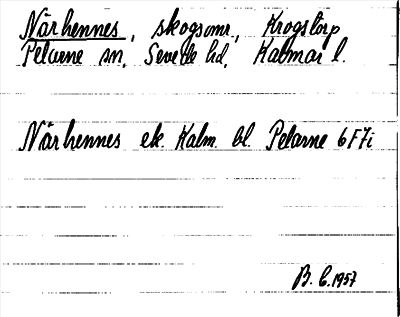 Närhennes, skogsomr., Krogstorp
Pelarne sn, Sevede hd, Kalmar l.
Närhennes ek. Kalm. bl. Pelarne 6F7i
B. C. 1957